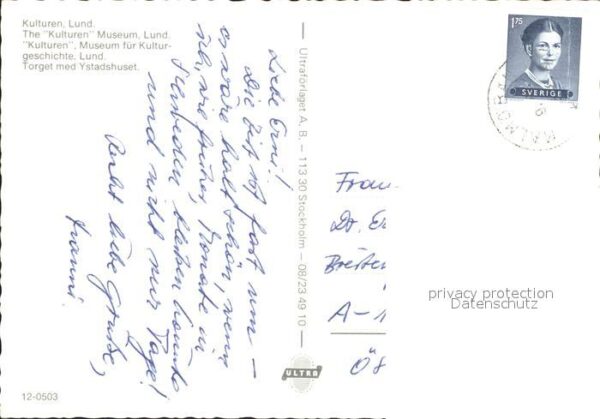 Kulturen, Lund.
The "Kulturen" Museum, Lund.
"Kulturen", Museum für Kultur-
geschichte, Lund.
Torget med Ystadshuset.
Liebe Erni!
Die Zeit ist fast um –
es wäre halt schön, wenn
wie früher Monate in
Schweden bleiben könnte
und nicht nur Tage!
Recht liebe Grüße,
Hanni.
Ultraförlaget A. B. – 113 30 Stockholm – 08/23 49 10
ULTRA
12-0503
1.75
SVERIGE
MALMÖ
Frau
Dr. Er
Breiten
A-1
ÖS
privacy protection
Datenschutz